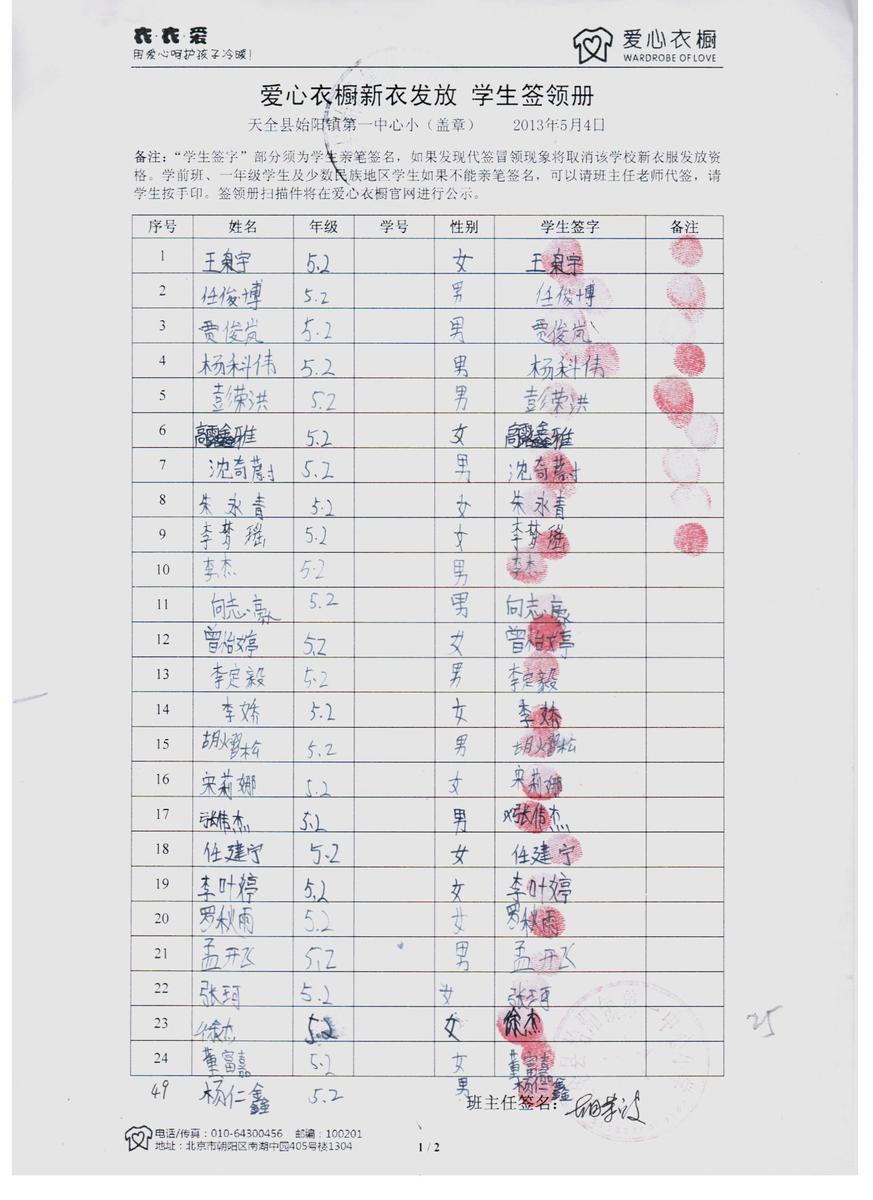 衣·衣·爱
用爱心呵护孩子冷暖!
爱心衣橱
WARDROBE OF LOVE
爱心衣橱新衣发放 学生签领册
天全县始阳镇第一中心小(盖章) 2013年5月4日
备注:“学生签字”部分须为学生亲笔签名,如果发现代签冒领现象将取消该学校新衣服发放资
格。学前班、一年级学生及少数民族地区学生如果不能亲笔签名,可以请班主任老师代签,请
学生按手印。签领册扫描件将在爱心衣橱官网进行公示。
序号 姓名 年级 学号 性别 学生签字 备注
1 王枭宇 5.2 女 王枭宇
2 任俊博 5.2 男 任俊博
3 贾俊岚 5.2 男 贾俊岚
4 杨科伟 5.2 男 杨科伟
5 彭荣洪 5.2 男 彭荣洪
6 高鑫雅 5.2 女 高鑫雅
7 沈奇蔚 5.2 男 沈奇蔚
8 朱永青 5.2 女 朱永青
9 李梦瑶 5.2 女 李梦瑶
10 李杰 5.2 男 李杰
11 向志豪 5.2 男 向志豪
12 曾怡婷 5.2 女 曾怡婷
13 李定毅 5.2 男 李定毅
14 李娇 5.2 女 李娇
15 胡熠松 5.2 男 胡熠松
16 宋莉娜 5.2 女 宋莉娜
17 张伟杰 5.2 男 张伟杰
18 任建宁 5.2 女 任建宁
19 李叶婷 5.2 女 李叶婷
20 罗秋雨 5.2 女 罗秋雨
21 孟开飞 5.2 男 孟开飞
22 张珂 5.2 女 张珂
23 徐杰 5.2 女 徐杰
24 董富嘉 5.2 女 董富嘉
49 杨仁鑫 5.2 男 杨仁鑫
25
班主任签名:
电话/传真:010-64300456 邮编:100201
地址:北京市朝阳区南湖中园405号楼1304
1 / 2